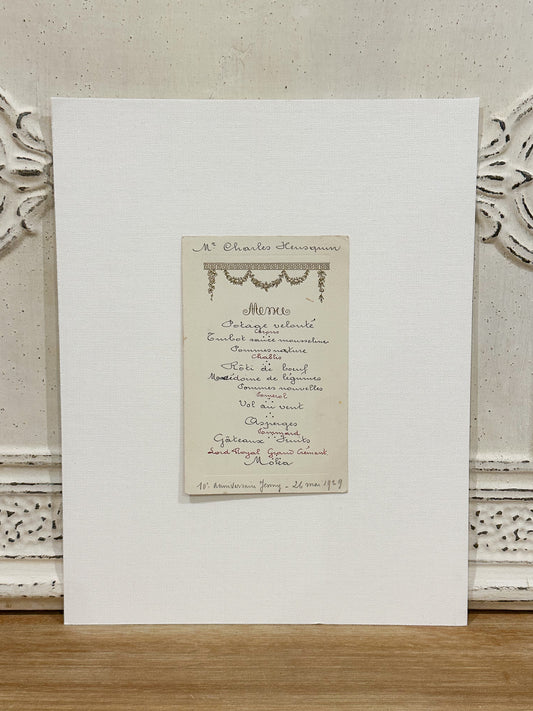 Mr Charles Heusquin
Menu
Potage velouté
Turbot sauce mousseline
Pommes nature
Chablis
Rôti de bœuf
Macédoine de légumes
Pommes nouvelles
Pomerol
Vol au vent
Asperges
Pommard
Gâteaux Fruits
Lord Royal Grand Crément
Moka
10e anniversaire Jenny - 26 mai 1929